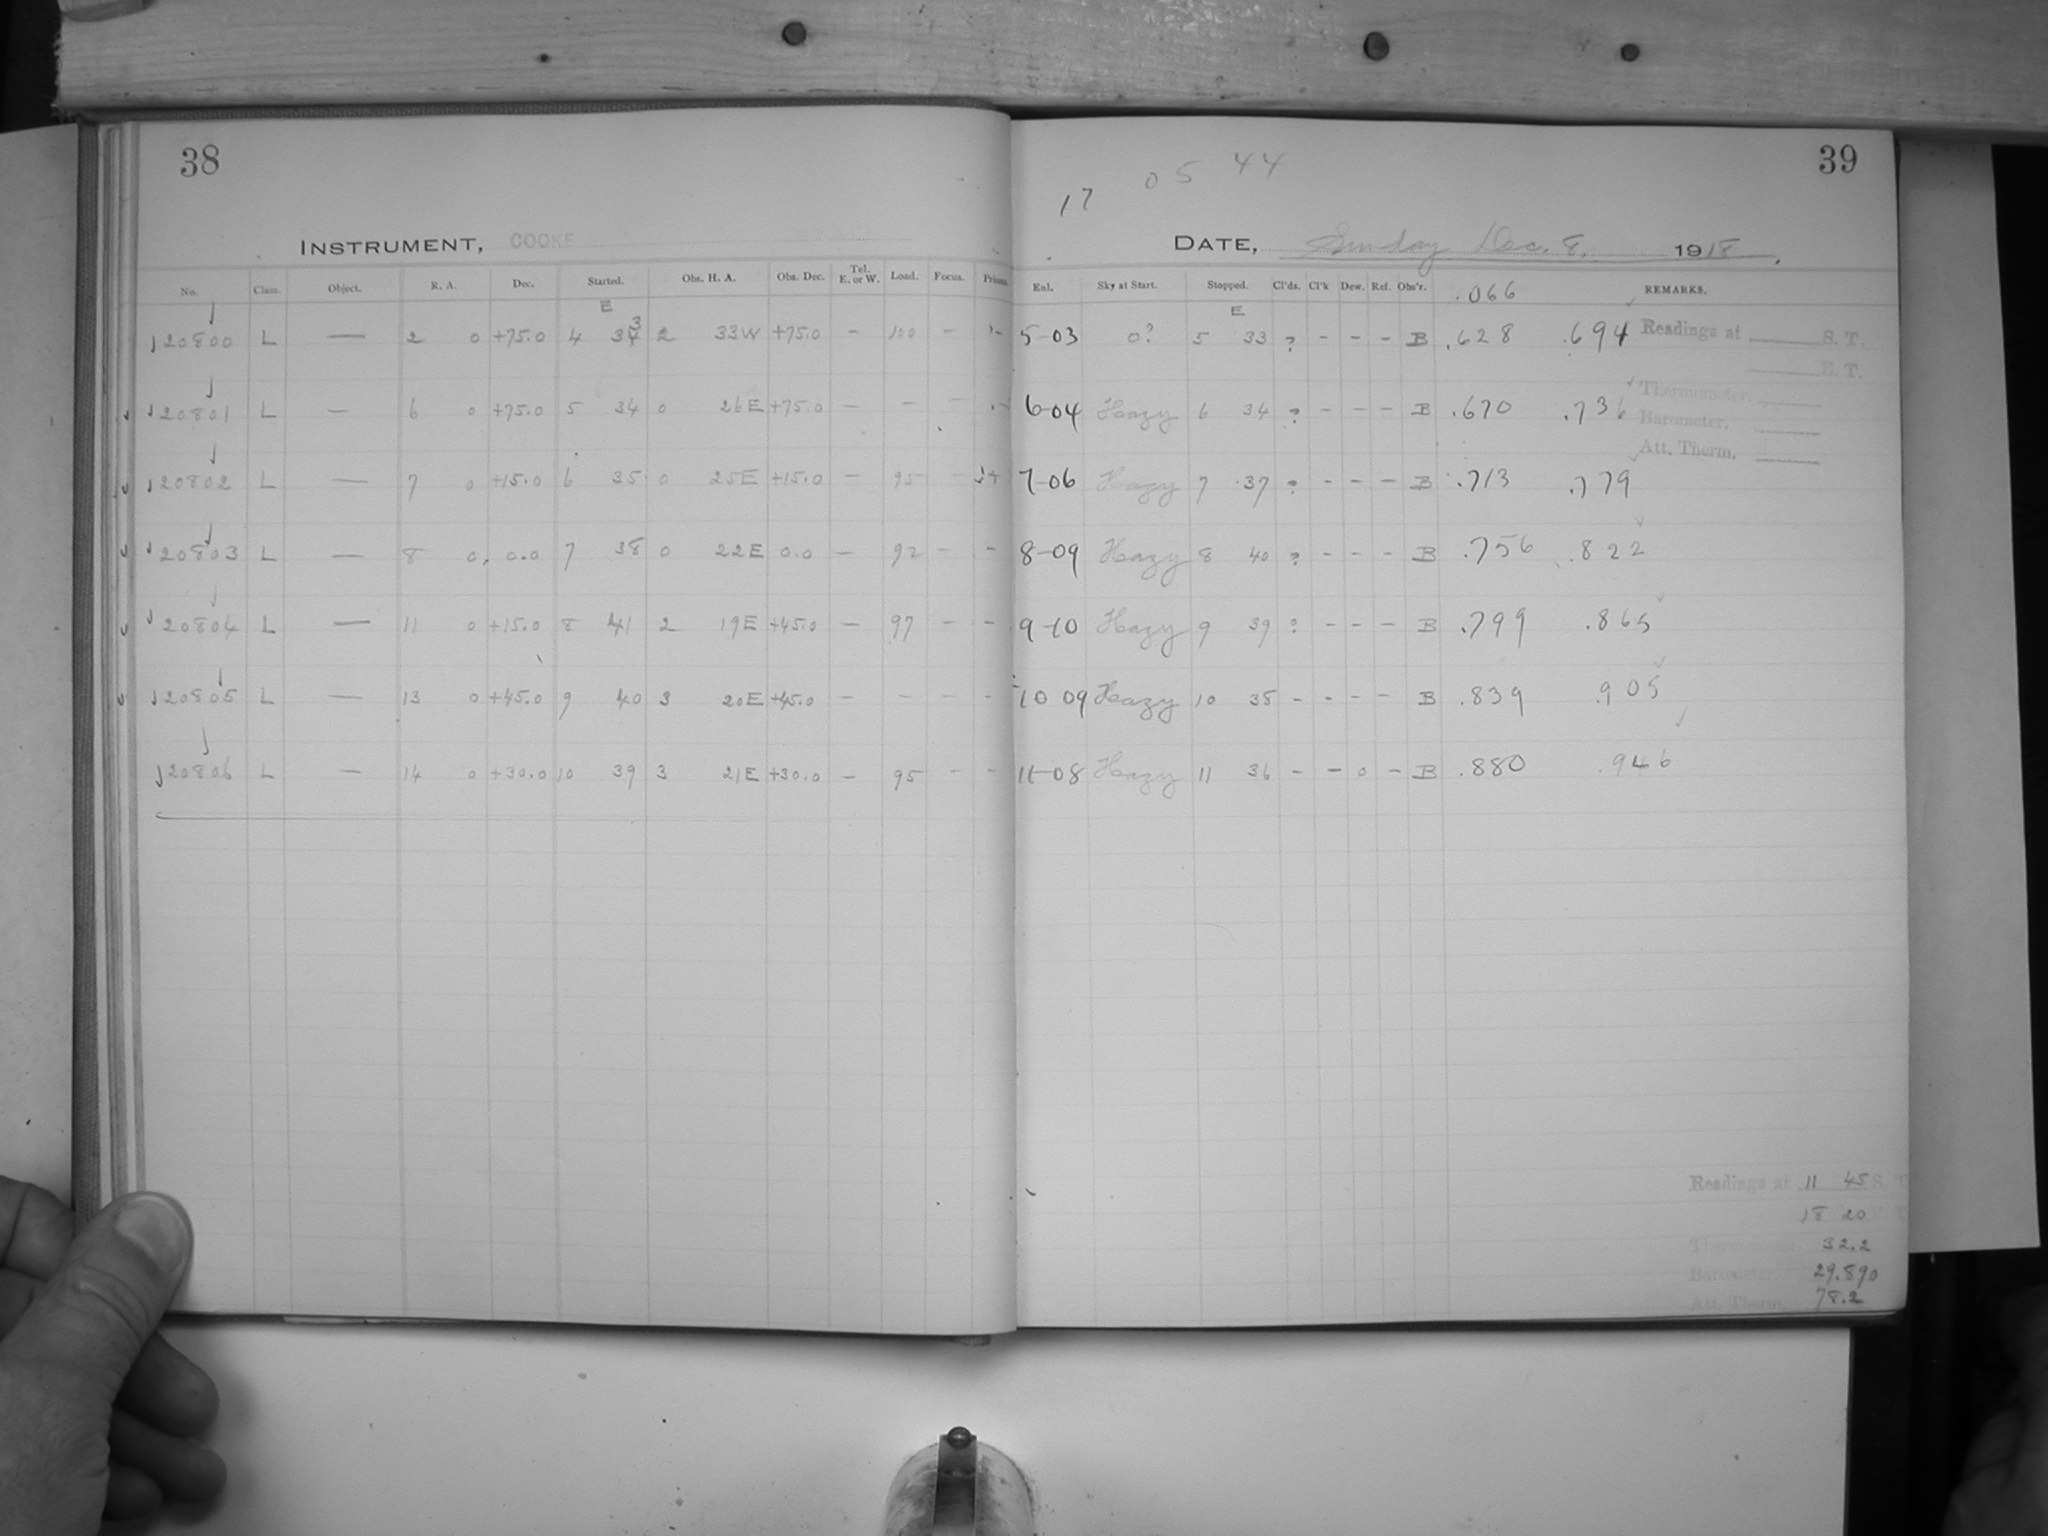 38
INSTRUMENT, COOKE
No. Class. Object. R. A. Dec. Started. Obs. H. A. Obs. Dec. Tel. E. or W. Load. Focus. Prisms.
E
20800 L — 2 0 +75.0 4 2 33W +75.0 — 100 — -
20801 L — 6 0 +75.0 5 34 0 26E +75.0 — — — -
20802 L — 7 0 +15.0 6 35 0 25E +15.0 — 95 -
20803 L — 8 0 0.0 7 38 0 22E 0.0 — 92 - -
20804 L — 11 0 +15.0 8 41 2 19E +45.0 — 97 - -
20805 L — 13 0 +45.0 9 40 3 20E +45.0 - - - -
20806 L — 14 0 +30.0 10 39 3 21E +30.0 - 95 - -
39
17 05 44
DATE, Sunday Dec. 8, 1918
Enl. Sky at Start. Stopped. Cl'ds. Cl'k Dew. Ref. Obs'r. .066 REMARKS.
E
5-03 0? 5 33 ? - - - B .628 .694 Readings at S. T.
E. T.
6-04 Hazy 6 34 ? - - - B .670 .736 Thermometer.
Barometer.
Att. Therm.
7-06 Hazy 7 37 ? - - - B .713 .779
8-09 Hazy 8 40 ? - - - B .756 .822
9-10 Hazy 9 39 ? - - - B .799 .865
10 09 Hazy 10 38 - - - - B .839 .905
11-08 Hazy 11 36 - - 0 - B .880 .946
Readings at 11 45 S. T.
18 20
Thermometer. 32.2
Barometer. 29.890
Att. Therm. 78.2